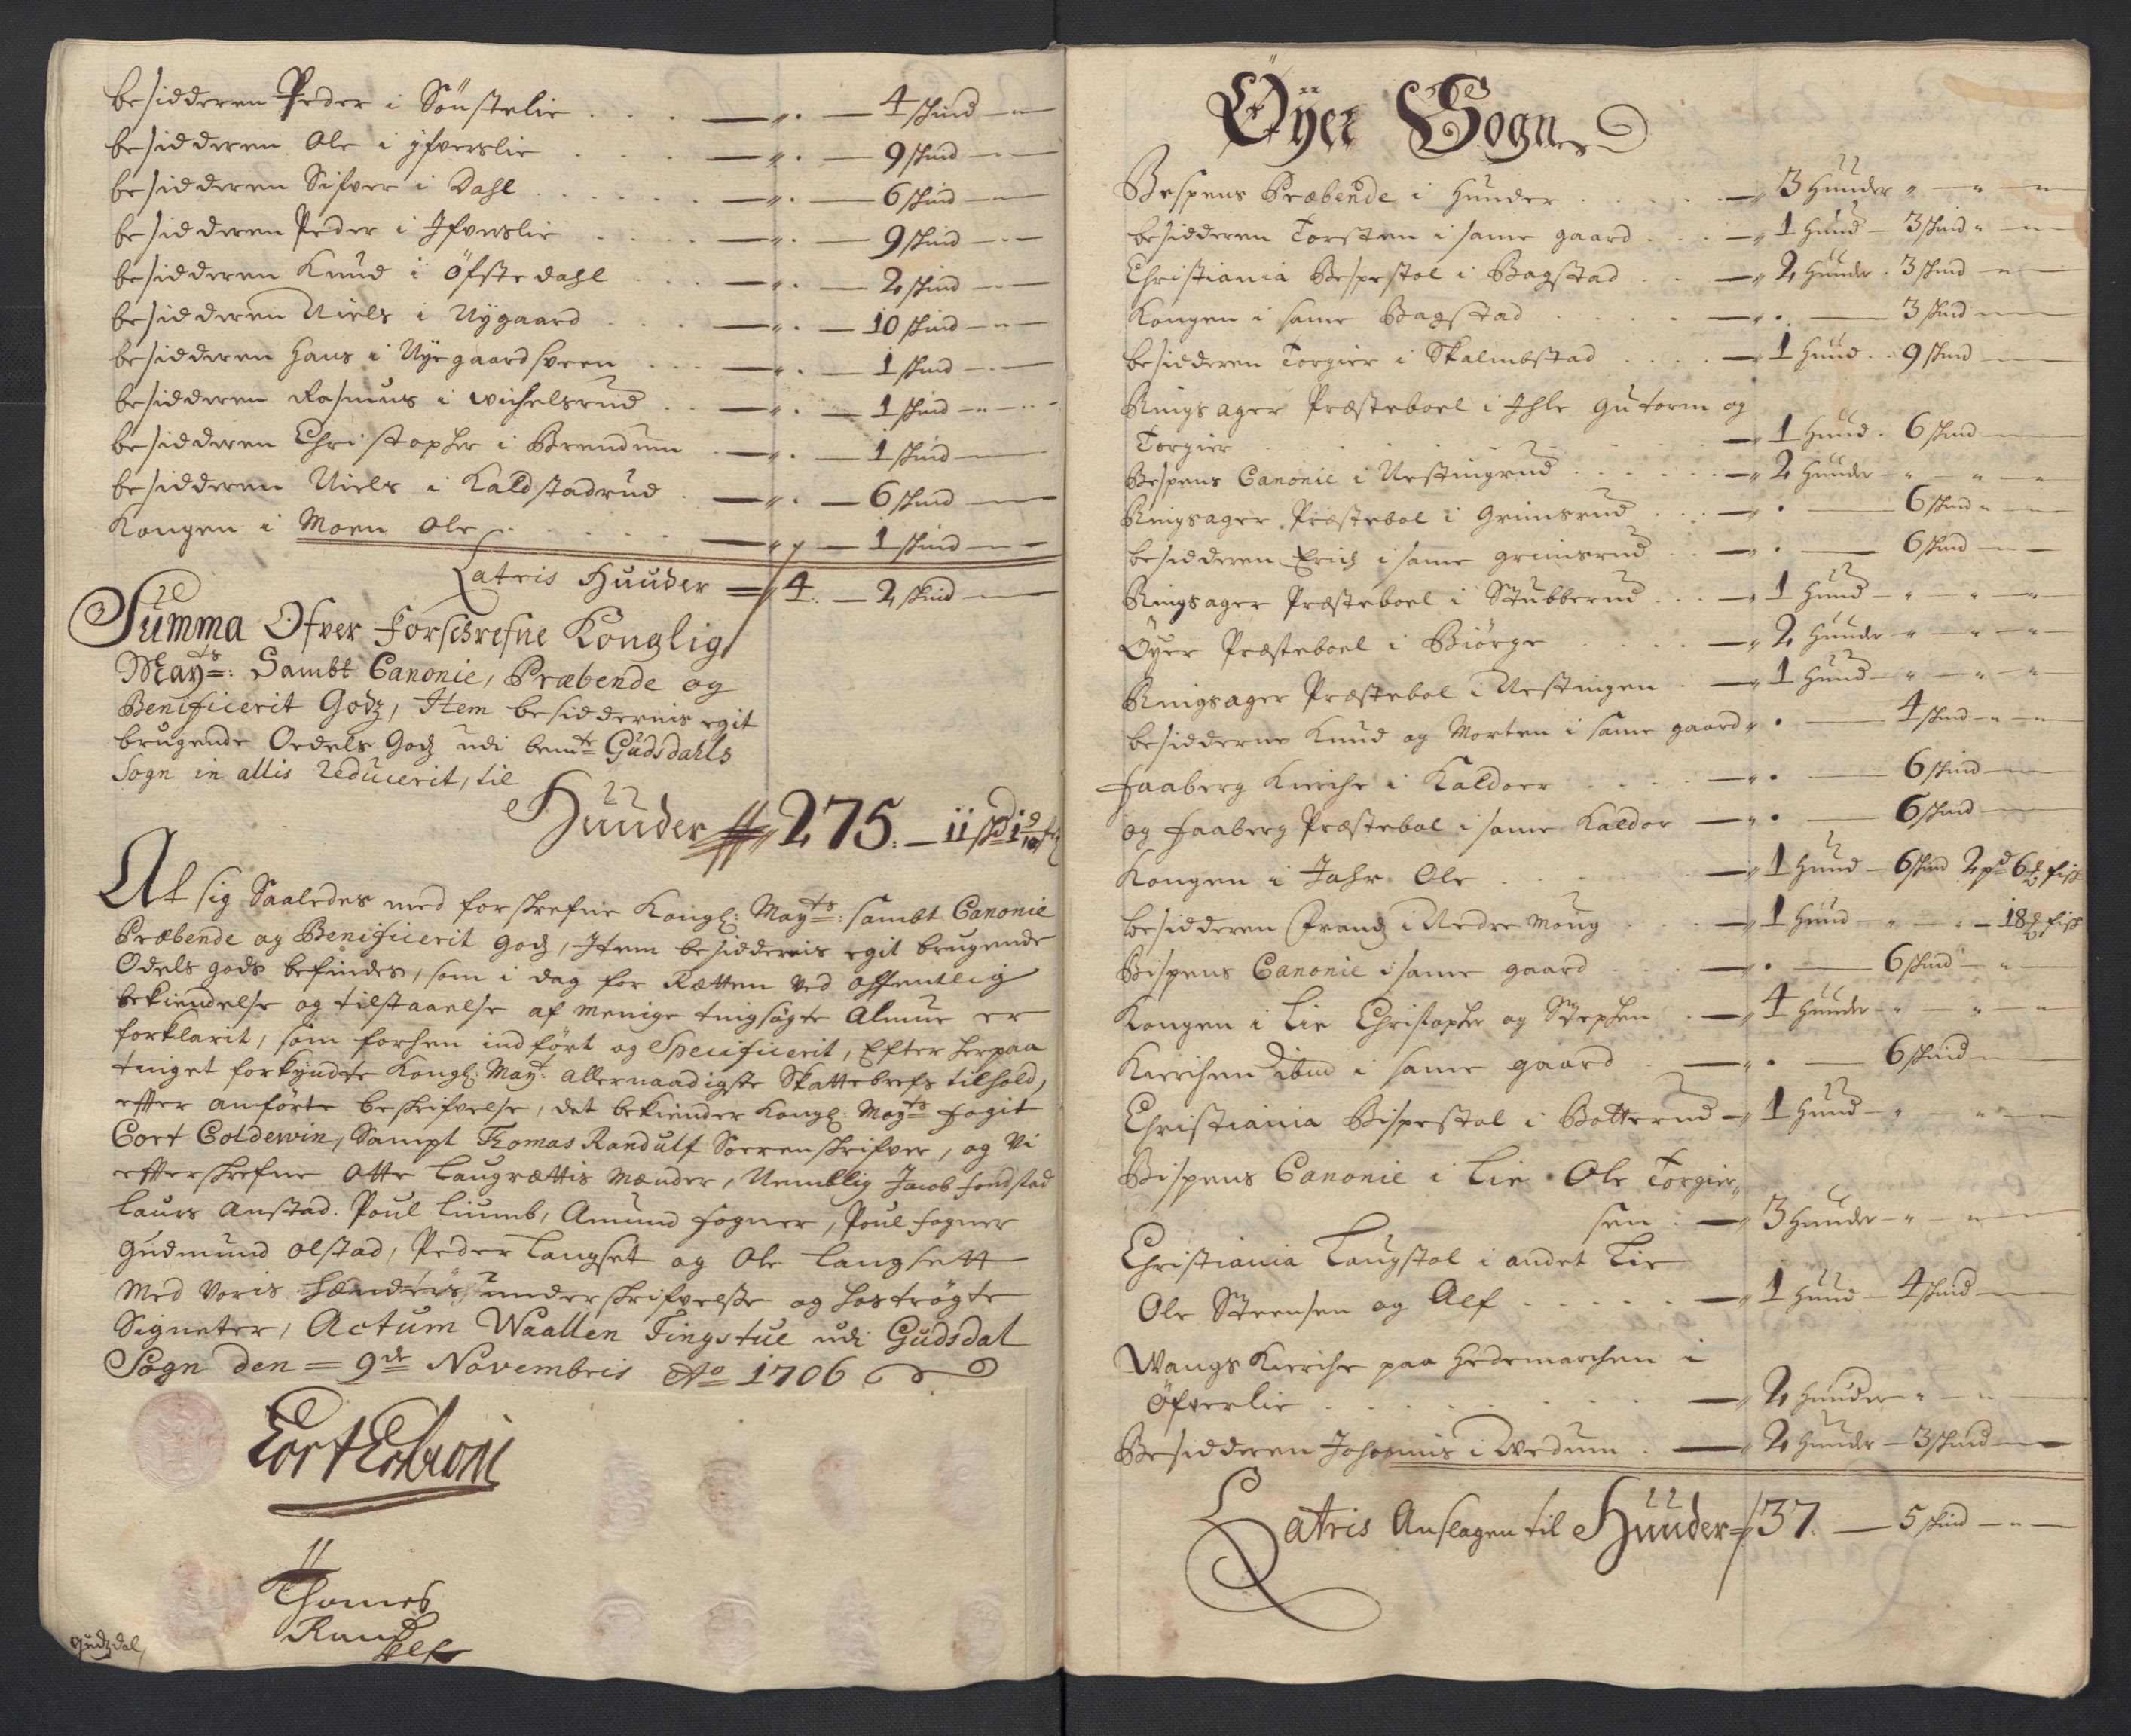 besidderen Peder i Sönstelie . . . — „ . — 4 skind — „ —
besidderen Ole i yfverslie . . . — „ . — 9 skind — „ —
besidderen Sifver i Dahl . . . — „ . — 6 skind — „ —
besidderen Peder i Ifverslie . . . — „ . — 9 skind — „ —
besidderen Knud i Öfste dahl . . . — „ . — 2 skind — „ —
besidderen Niels i Nygaard . . . — „ . — 10 skind — „ —
besidderen Hans i Nyegaardsveen . . . — „ . — 1 skind — „ —
besidderen Rasmus i Wichelsrud . . — „ . — 1 skind — „ —
besidderen Christopher i Brendum . — „ . — 1 skind —
besidderen Niels i Kaldstadrud . — „ . — 6 skind —
Kongen i Moen Ole . . . — „ — 1 skind — „ —
Latris Huuder — 4 . — 2 skind —
Summa Ofver Forschrefne Konglig
Mayts: Sambt Canonie, Præbende og
Benificerit Godz, Item besiddernis egit
brugende Oedels Godz udi bemte Gudsdahls
Sogn in allis reducerit, til
Huuder 275. — 11 skd
At sig Saaledes med forskrefne Kongl: Mayts: sambt Canonie
Præbende og Benificerit godz, Item besiddernis egit brugende
Odels gods befindes, som i dag for Rætten ved offentlig
bekiendelse og tilstaaelse af menige tingsøgte Almue er
forklarit, som forhen indført og Specificerit, Efter herpaa
tinget forkyndte Kongl: Mayt: allernaadigste Skattebrefs tilhold,
effter anførte beskrifvelse, det bekiender Kongl: Mayts fogit
Cort Coldewin, Sampt Thomas Randulf Sorenskrifver, og Vi
effterskrefne Otte Laugrættis Mænder, Nemblig Jacob fondstad
Laurs Anstad. Poul Liumb, Amund fogner, Poul fogner
Gudmund Olstad, Peder Langset og Ole Langsett
Med voris hænders underskrifvelse og hostrøgte
Signeter, Actum Waallen Tingstue udi Gudsdal
Sogn den = 9de Novembris Ao 1706
Cort Coldewin
Thomes
Randulf
Gudzdal
Öyer Sogn
Bespens Præbende i Hunder . . . — „ 3 Huuder „ — „ — „
besidderen Torsten i same gaard . . . — „ 1 Huud — 3 skind „ —
Christiania Bespestol i Bagstad . . — „ 2 Huuder . 3 skind — „ —
Kongen i same Bagstad . . . — „ . — 3 skind —
besidderen Torgier i Skalmbstad . . . — „ 1 Huud . . 9 skind —
Ringsager Præsteboel i Ihle Gutorm og
Torgier . . . — „ 1 Huud . 6 skind —
Bespens Canonie i Nestingrud . . . — „ 2 Huuder — „ — „ — „
Ringsager Præstebol i Grimsrud . . . — „ . — 6 skind „ —
besidderen Erich i same grimsrud . . — „ . — 6 skind — „ —
Ringsager Præsteboel i Stubberud . . . — „ 1 Huud — „ — „ —
Öyer Præsteboel i Biörge . . . — „ 2 Huuder „ — „ — „
Ringsager Præstebol i Nestingen . — „ 1 Huud — „ — „ — „
besidderne Knud og Morten i same gaard „ . — 4 skind — „ —
Faaberg Kirche i Kaldoer . . . — „ . — 6 skind —
og Faaberg Præstebol i same Kaldor — „ . — 6 skind —
Kongen i Jahr Ole . . . — „ 1 Huud — 6 skind 2 pd 6 fisk
besidderen Frandz i Nedre Moug . . . — „ 1 Huud — „ — 18 fisk
Bispens Canonie i same gaard . . . — „ . — 6 skind — „
Kongen i Lie Christopher og Stephen . — „ 4 Huuder — „ — „ — „
Kierchen ibm i same gaard . — „ . — 6 skind —
Christiania Bispestol i Botterud — „ 1 Huud — „ — „ —
Bispens Canonie i Lie Ole Torgier„
sen : — „ 3 Huuder — „ — „ —
Christiania Laugstol i andet Lie
Ole Steensen og Alf . . . — „ 1 Huud — 4 skind —
Wangs Kierche paa Hedemarchen i
Öfverlie . . . — „ 2 Huuder — „ — „ —
Besidderen Johannis i Wedum . — „ 2 Huuder — 3 skind —
Latris Anslagen til Huuder 37. — 5 skind — „ —